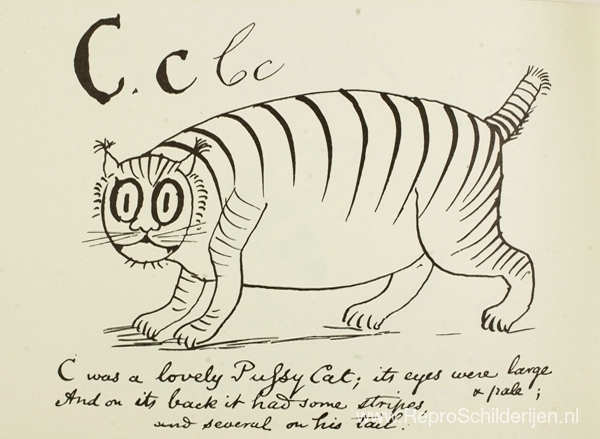 C. c C c
C was a lovely Pussy Cat; its eyes were large
& pale;
And on its back it had some stripes,
and several on his tail.
www.ReproSchilderijen.nl